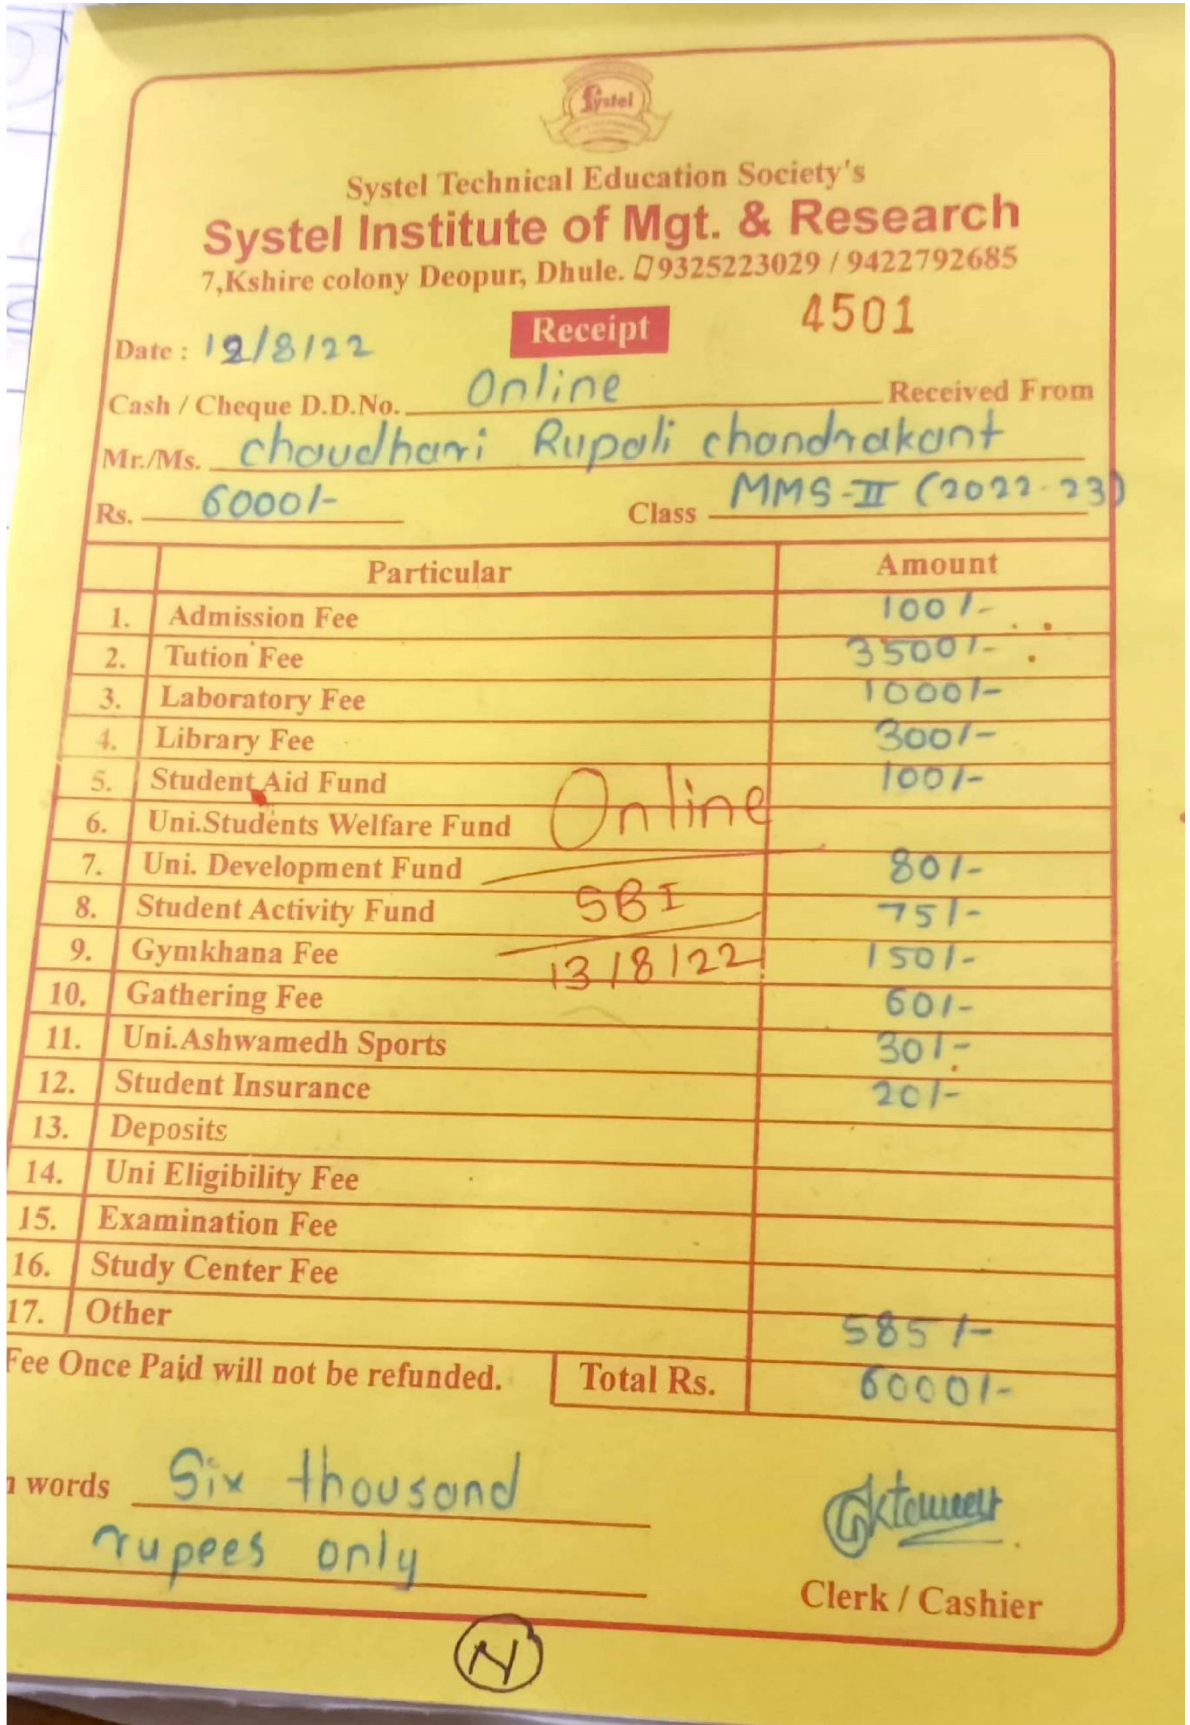 Systel
Systel Technical Education Society's
Systel Institute of Mgt. & Research
7,Kshire colony Deopur, Dhule. 9325223029 / 9422792685
Receipt 4501
Date : 12/8/22
Cash / Cheque D.D.No. Online Received From
Mr./Ms. Choudhari Rupali chandrakant
Rs. 6000/- Class MMS-II (2022-23)
Particular Amount
1. Admission Fee 100/-
2. Tution Fee 3500/-
3. Laboratory Fee 1000/-
4. Library Fee 300/-
5. Student Aid Fund 100/-
6. Uni.Students Welfare Fund Online
7. Uni. Development Fund 80/-
8. Student Activity Fund SBI 75/-
9. Gymkhana Fee 13/8/22 150/-
10. Gathering Fee 60/-
11. Uni.Ashwamedh Sports 30/-
12. Student Insurance 20/-
13. Deposits
14. Uni Eligibility Fee
15. Examination Fee
16. Study Center Fee
17. Other 585/-
Fee Once Paid will not be refunded. Total Rs. 6000/-
n words Six thousand
rupees only
Clerk / Cashier
N